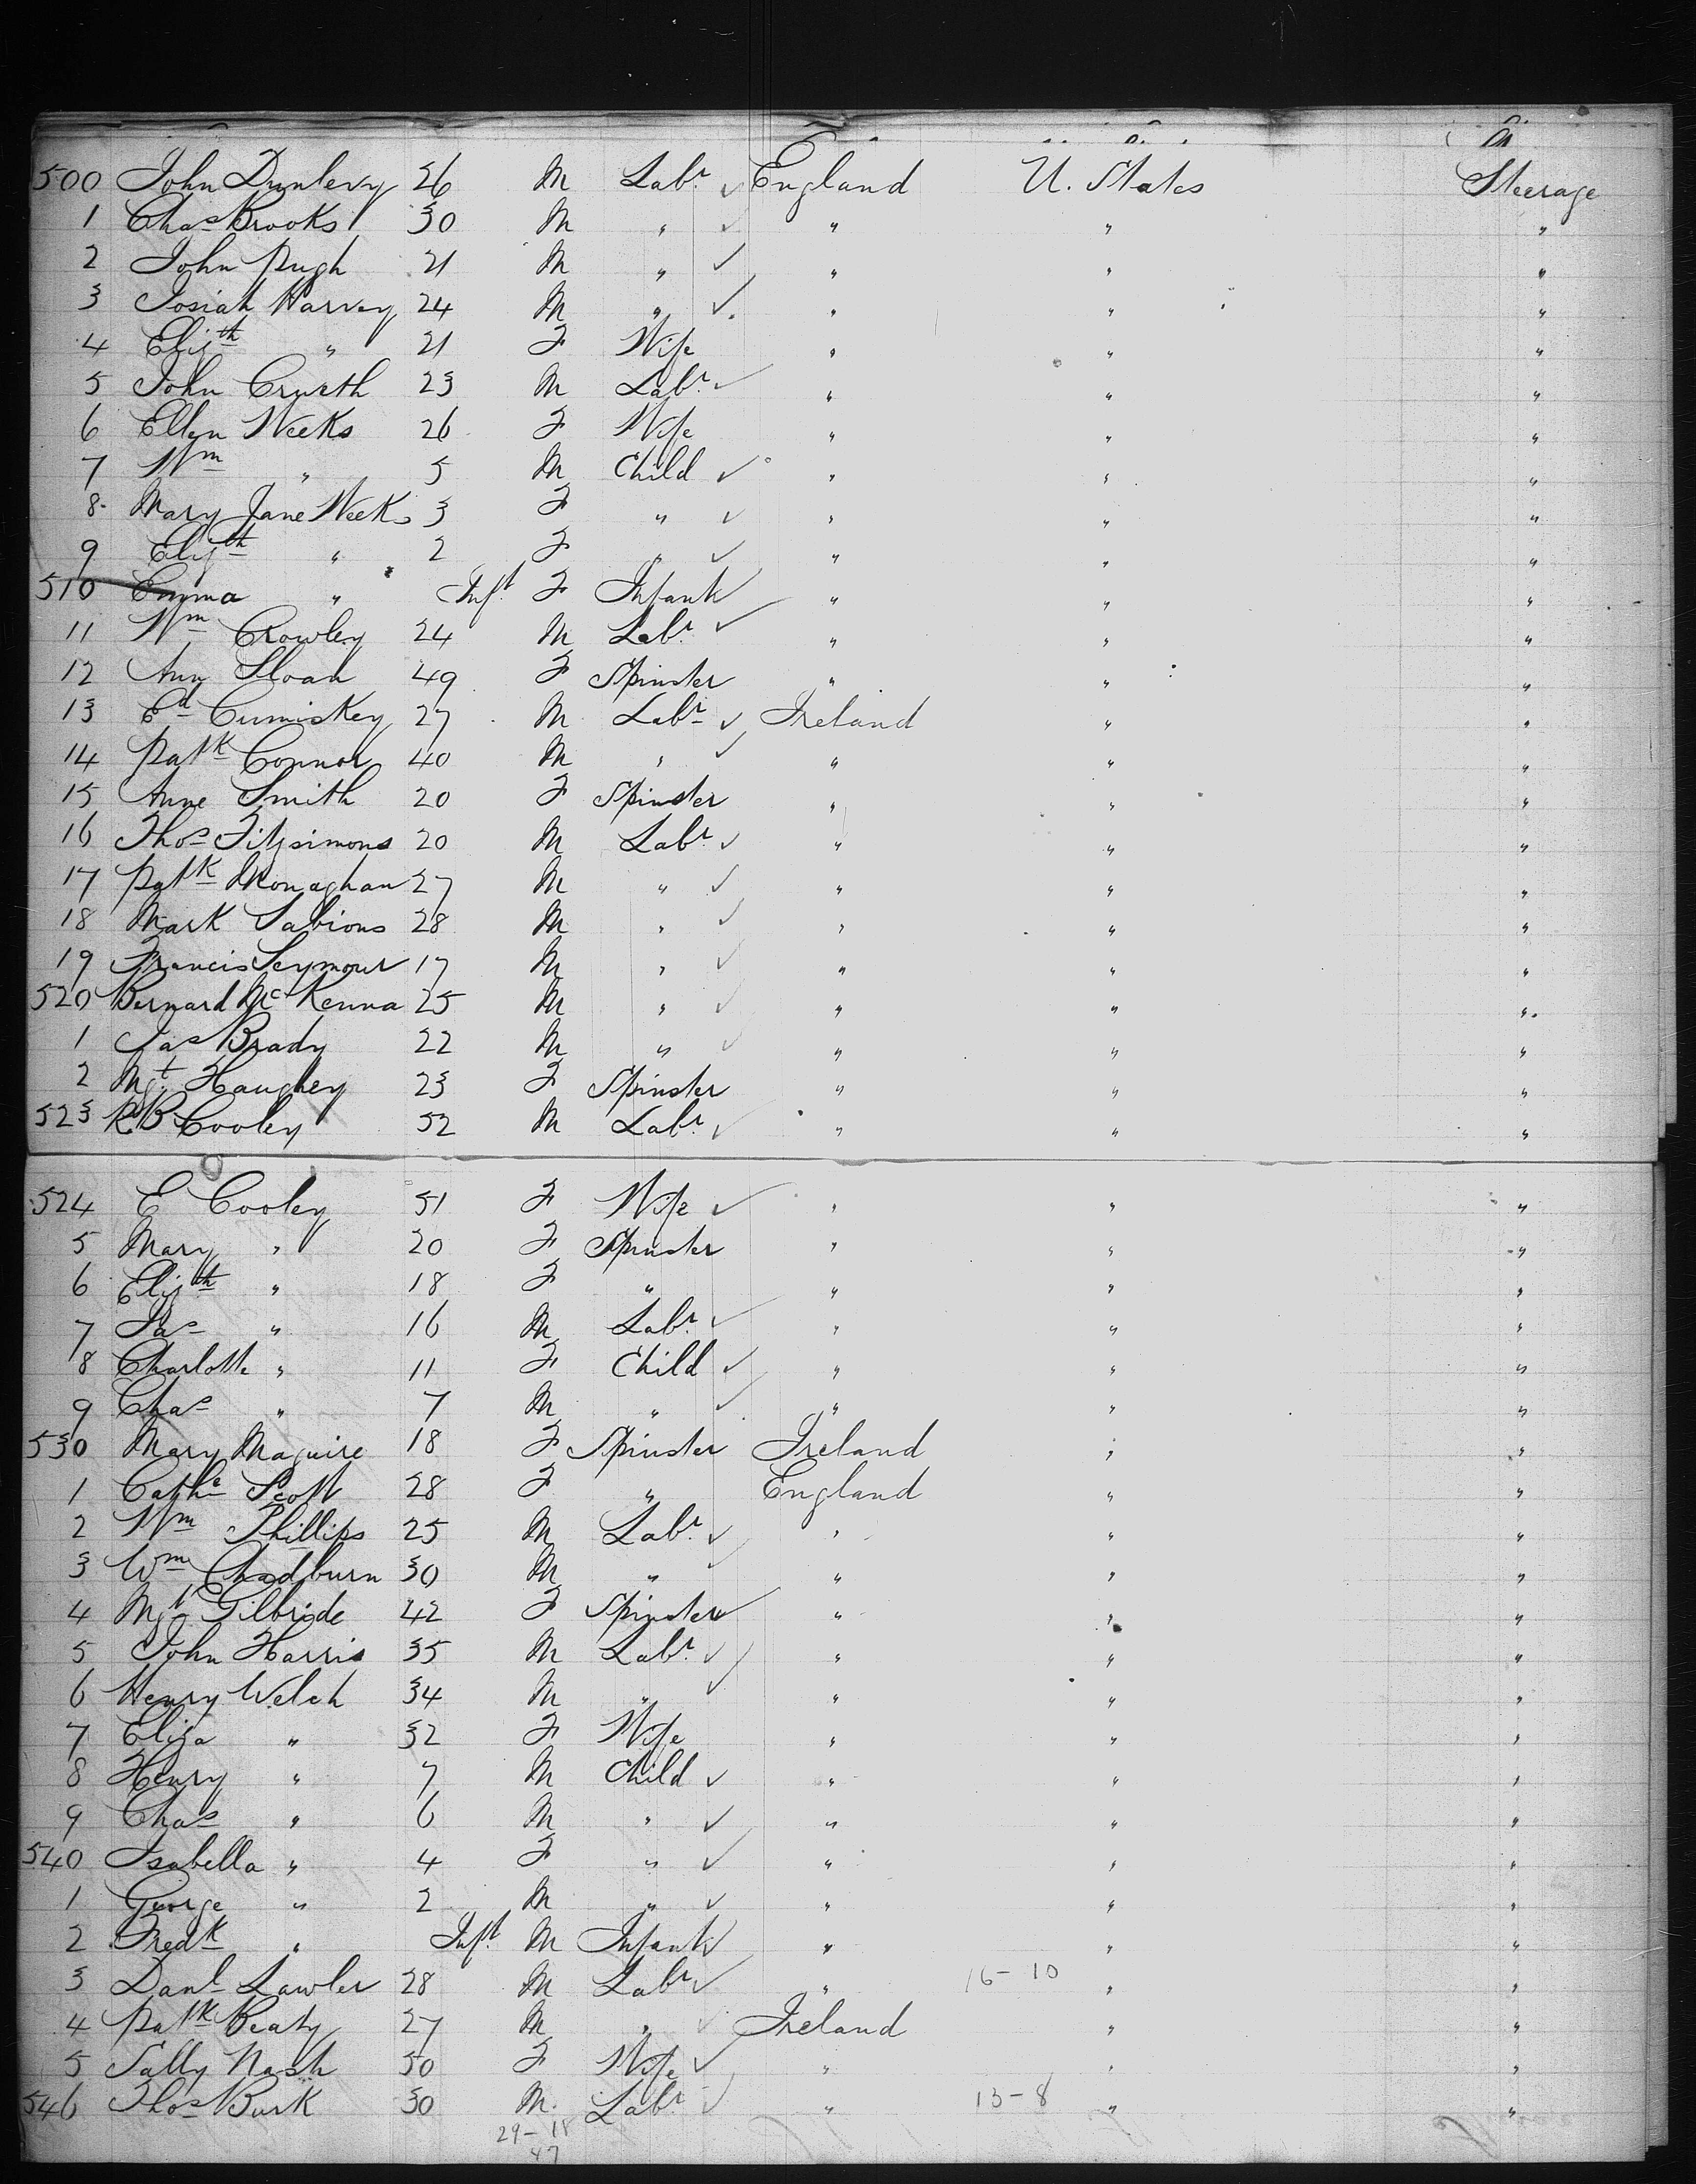 500 John Dunlevy 26 M Labr ✓ England U. States Steerage
1 Chas Brooks 30 M " ✓ " " "
2 John Pugh 21 M " ✓ " " "
3 Josiah Harvey 24 M " ✓ " " "
4 Elizth " 21 F Wife " " "
5 John 23 M Labr ✓ " " "
6 Ellen Weeks 26 F Wife " " "
7 Wm " 5 M Child ✓ " " "
8 Mary Jane Weeks 3 F " ✓ " " "
9 Elizth " 2 F " ✓ " " "
510 Emma " Inft F Infant ✓ " " "
11 Wm Crowley 24 M Labr ✓ " " "
12 Ann Sloan 49 F Spinster " " "
13 Ed Cumiskey 27 M Labr ✓ Ireland " "
14 Patk Connor 40 M " ✓ " " "
15 Anne Smith 20 F Spinster " " "
16 Thos Fitzsimons 20 M Labr ✓ " " "
17 Patk Monaghan 27 M " ✓ " " "
18 Mark Sabions 28 M " ✓ " " "
19 Francis Seymour 17 M " ✓ " " "
520 Bernard McKenna 25 M " ✓ " " "
1 Jas Brady 22 M " ✓ " " "
2 Mgt Haughey 23 F Spinster " " "
523 R B Cooley 52 M Labr ✓ " " "
524 E Cooley 51 F Wife ✓ " " "
5 Mary " 20 F Spinster " " "
6 Elizth " 18 F " " " "
7 Jas " 16 M Labr ✓ " " "
8 Charlotte " 11 F Child ✓ " " "
9 Chas " 7 M " ✓ " " "
530 Mary Maguire 18 F Spinster Ireland " "
1 Cathe Scott 28 F " England " "
2 Wm Phillips 25 M Labr ✓ " " "
3 Wm Chadburn 30 M " ✓ " " "
4 Mgt Gilbride 42 F Spinster ✓ " " "
5 John Harris 35 M Labr ✓ " " "
6 Henry Welch 34 M " ✓ " " "
7 Eliza " 32 F Wife " " "
8 Henry " 7 M Child ✓ " " "
9 Chas " 6 M " ✓ " " "
540 Isabella " 4 F " ✓ " " "
1 George " 2 M " ✓ " " "
2 Fredk " Inft M Infant ✓ " " "
3 Danl Lawler 28 M Labr ✓ " 16-10 " "
4 Patk Beaty 27 M " ✓ Ireland " "
5 Sally Nash 50 F Wife ✓ " " "
546 Thos Burk 30 M. Labr ✓ " 13-8 " "
29-18
47